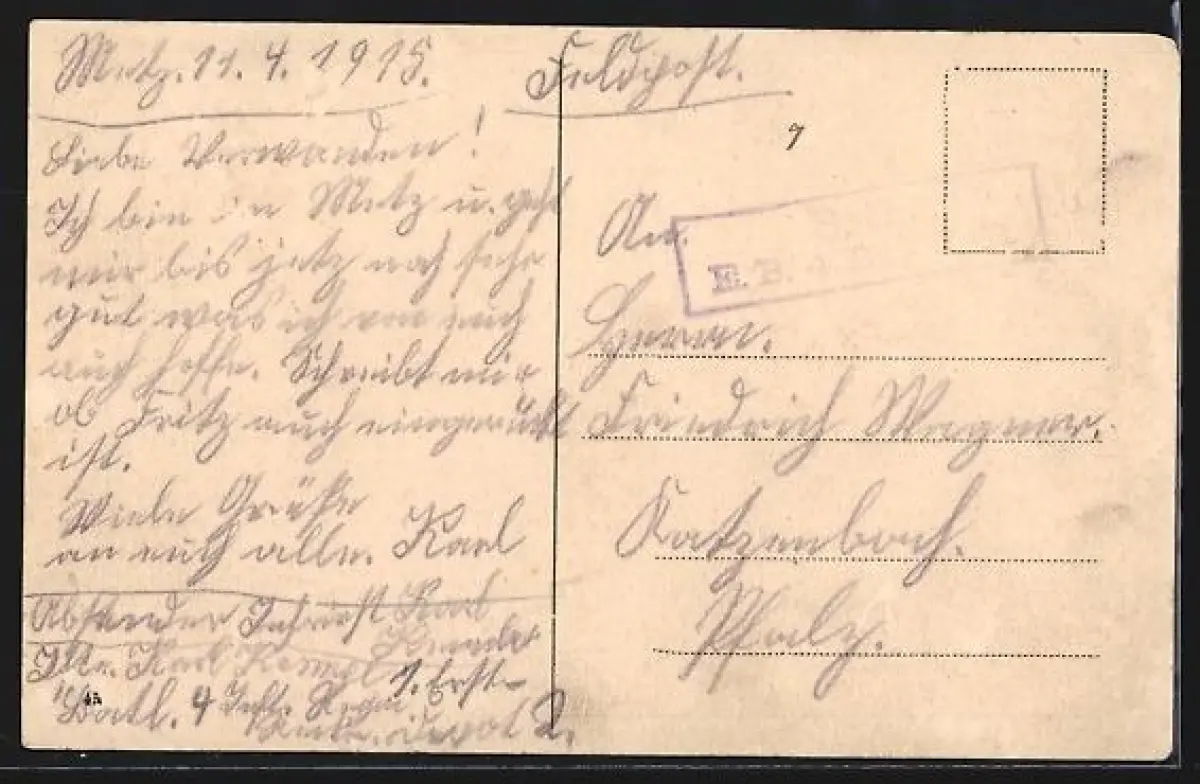 Metz. 11. 4. 1915.
Feldpost.
Liebe Verwanden!
Ich bin in Metz u. geht
mir bis jetz noch sehr
gut was ich von euch
auch hoffe. Schreibt mir
ob Fritz auch eingerückt
ist.
Viele Grüße
an euch alle. Karl
Absender Karl
Karl
Batl. 4 1. Ers.
2.
4A
7
An.
E. B.
Herrn.
Friedrich Wagner.
Katzenbach.
Pfalz.